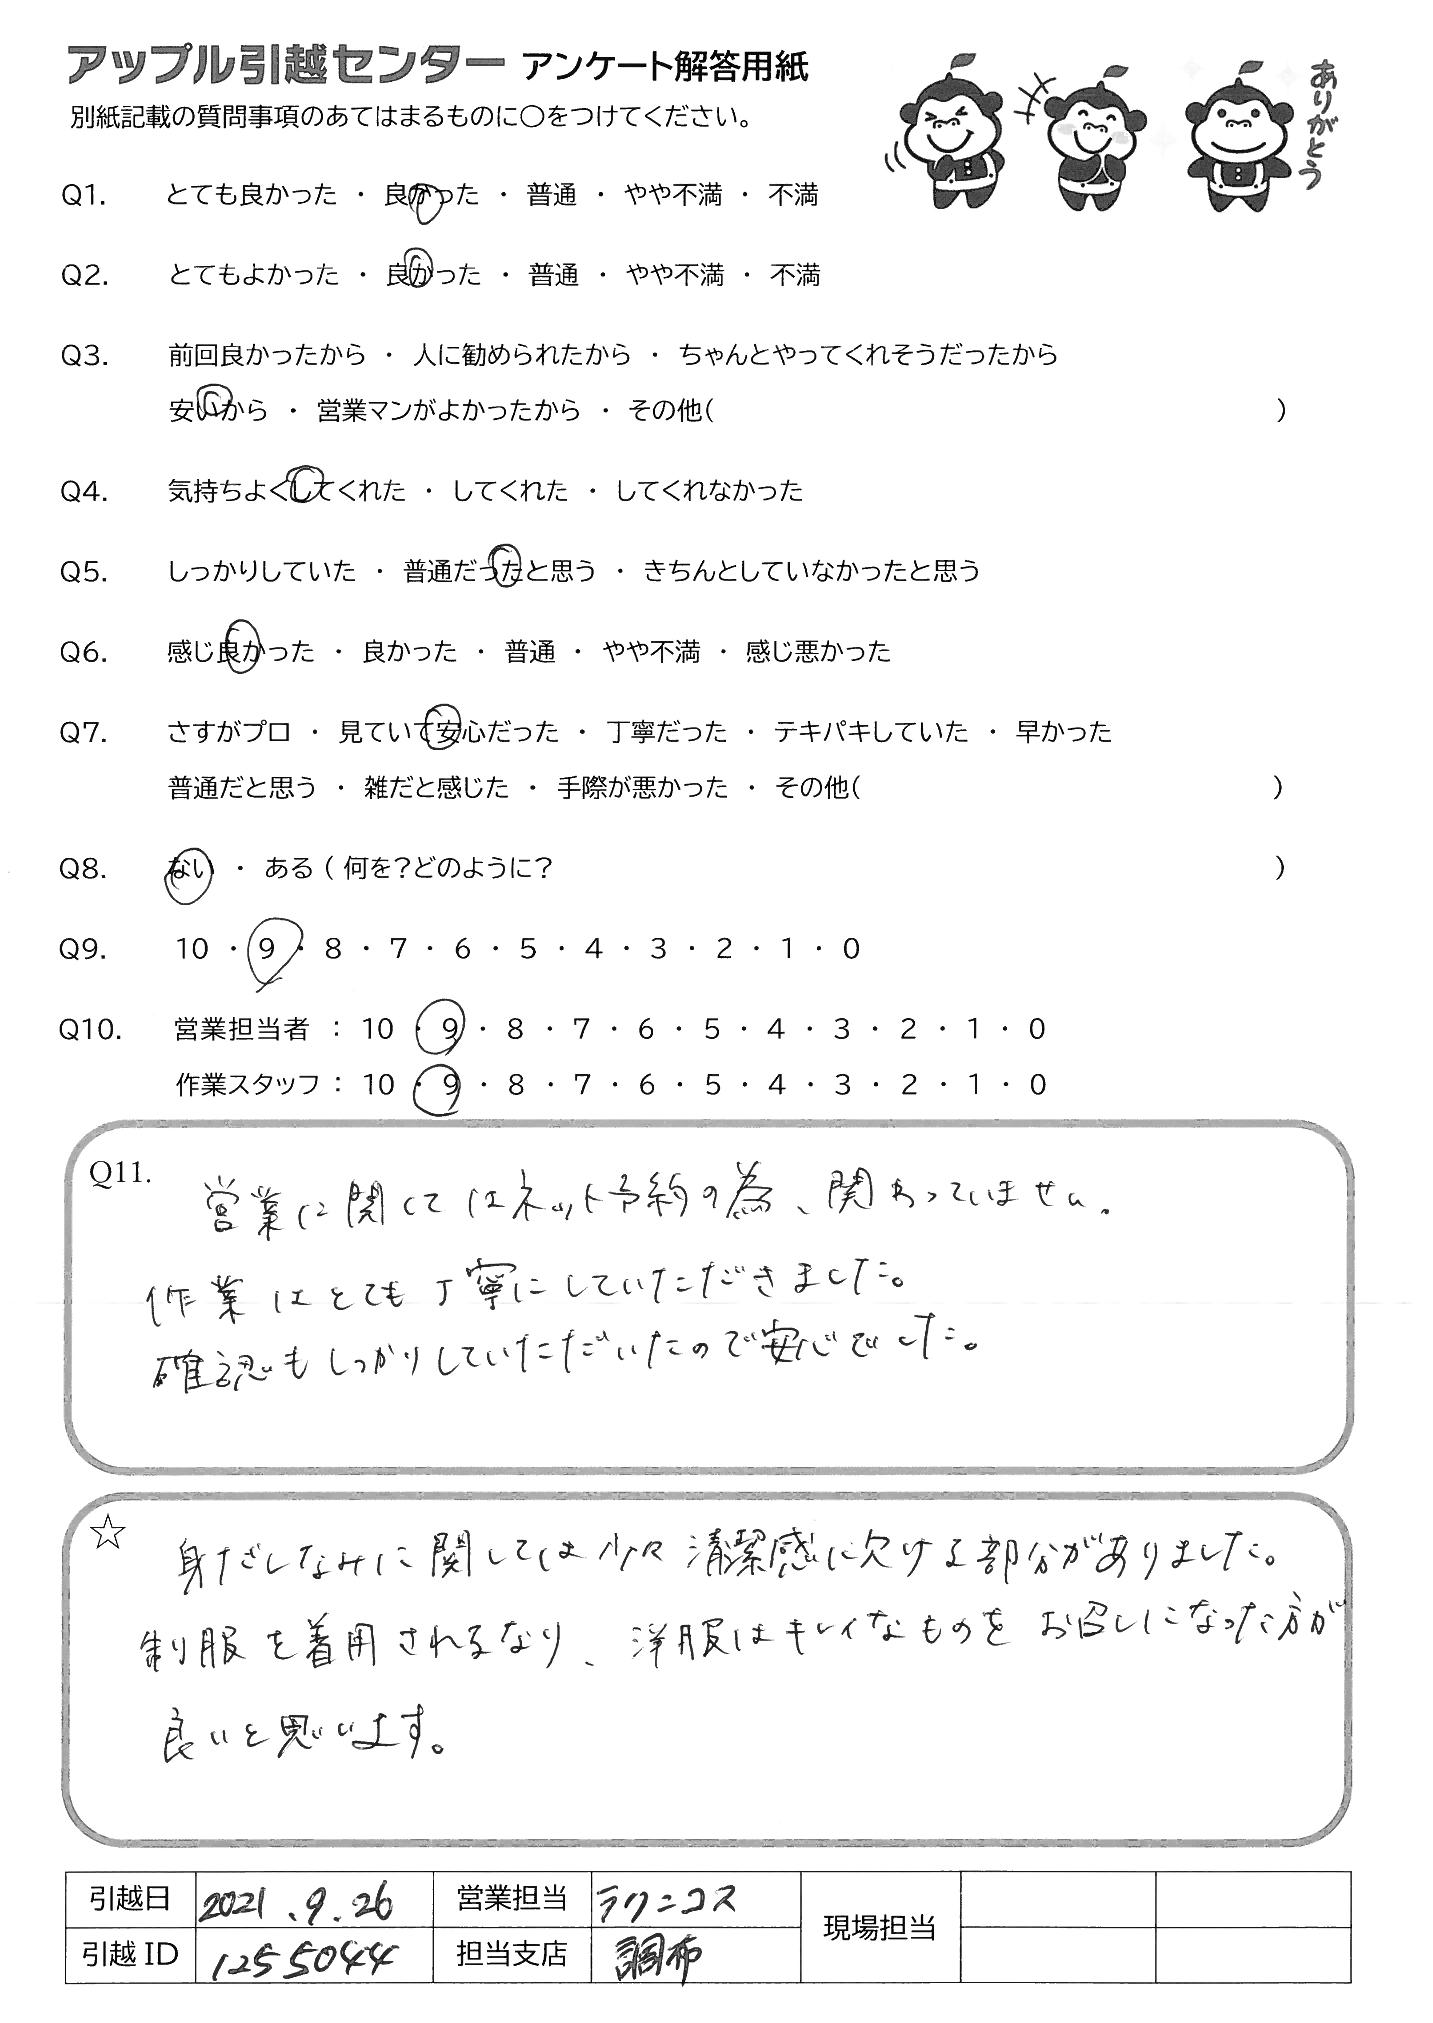 アップル引越センター アンケート解答用紙
ありがとう
別紙記載の質問事項のあてはまるものに〇をつけてください。
Q1. とても良かった ・ 良かった ・ 普通 ・ やや不満 ・ 不満
Q2. とてもよかった ・ 良かった ・ 普通 ・ やや不満 ・ 不満
Q3. 前回良かったから ・ 人に勧められたから ・ ちゃんとやってくれそうだったから
安いから ・ 営業マンがよかったから ・ その他( )
Q4. 気持ちよくしてくれた ・ してくれた ・ してくれなかった
Q5. しっかりしていた ・ 普通だったと思う ・ きちんとしていなかったと思う
Q6. 感じ良かった ・ 良かった ・ 普通 ・ やや不満 ・ 感じ悪かった
Q7. さすがプロ ・ 見ていて安心だった ・ 丁寧だった ・ テキパキしていた ・ 早かった
普通だと思う ・ 雑だと感じた ・ 手際が悪かった ・ その他( )
Q8. ない ・ ある ( 何を?どのように? )
Q9. 10 ・ 9 ・ 8 ・ 7 ・ 6 ・ 5 ・ 4 ・ 3 ・ 2 ・ 1 ・ 0
Q10. 営業担当者 : 10 ・ 9 ・ 8 ・ 7 ・ 6 ・ 5 ・ 4 ・ 3 ・ 2 ・ 1 ・ 0
作業スタッフ : 10 ・ 9 ・ 8 ・ 7 ・ 6 ・ 5 ・ 4 ・ 3 ・ 2 ・ 1 ・ 0
Q11. 営業に関してはネット予約の為、関わっていません。
作業はとても丁寧にしていただきました。
確認もしっかりしていただいたので安心でした。
☆ 身だしなみに関しては少々清潔感に欠ける部分がありました。
制服を着用されるなり、洋服はキレイなものをお召しになった方が
良いと思います。
引越日 2021.9.26 営業担当 ラクニコス 現場担当
引越ID 1255044 担当支店 調布